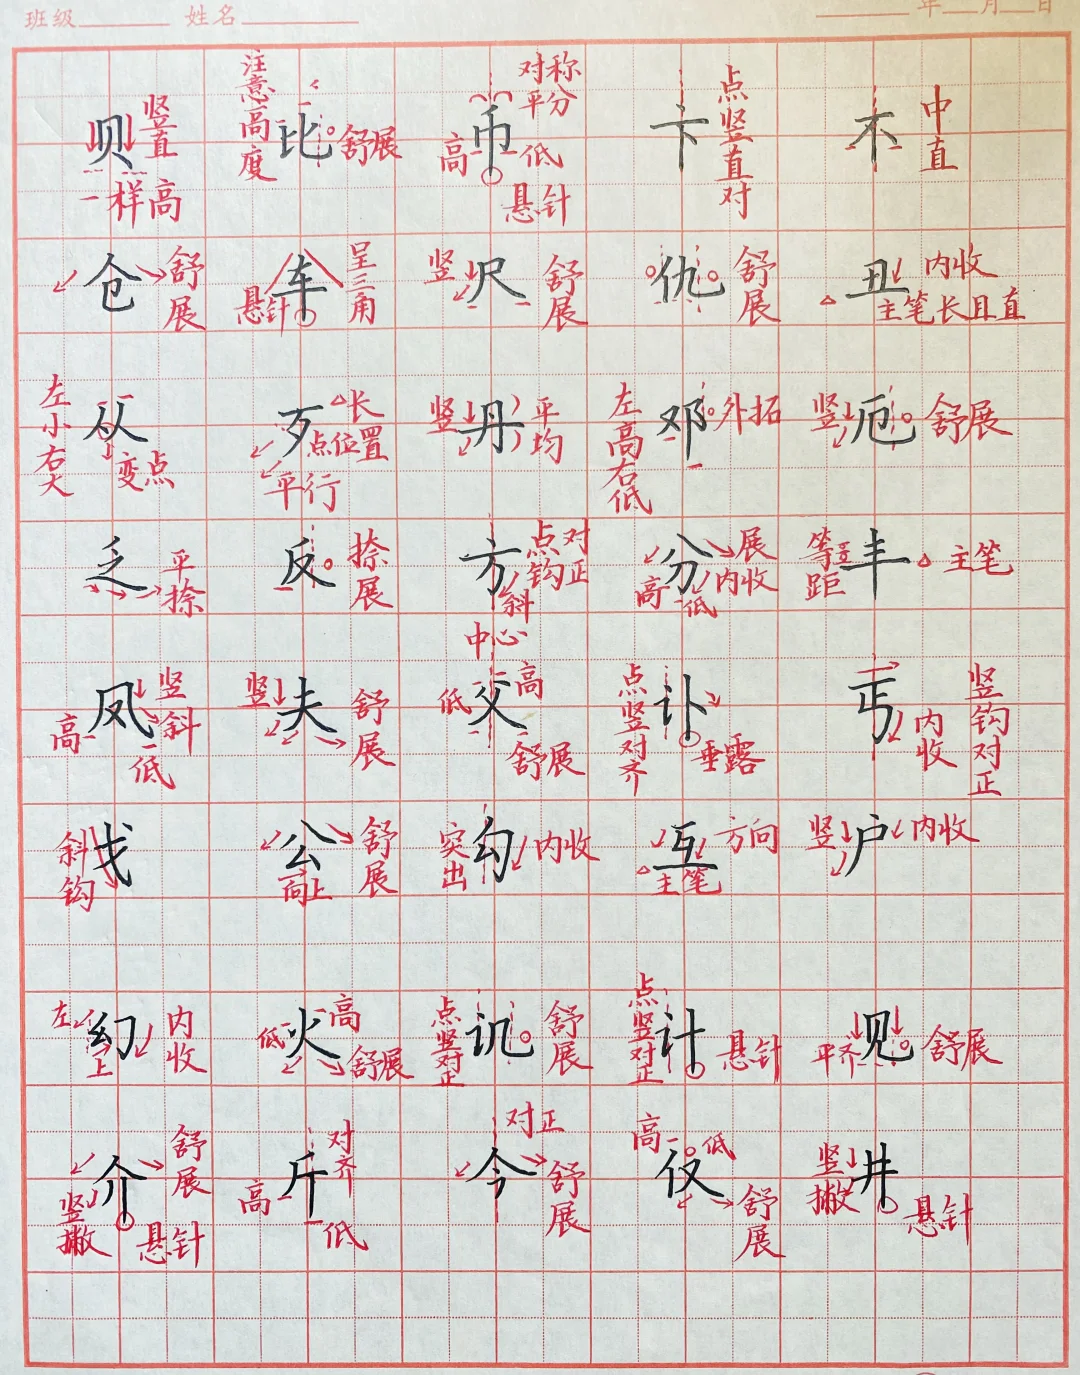 班级 姓名 年 月 日
呗 竖直 一样高
比 注意高度 舒展
币 对称 平分 高 低 悬针
卞 点竖直对
不 中直
仓 舒展
车 呈三角 悬针
尺 竖 舒展
仇 舒展
丑 内收 主笔长且直
从 左小右大 变点
歹 长 点位置 平行
丹 竖 平均
邓 左高右低 外拓
厄 竖 舒展
乏 平捺
反 捺展
方 点钩对正 斜 中心
分 展 内收 高 低
丰 等距 主笔
凤 竖斜 高 低
夫 竖 舒展
父 低 高 舒展
讣 点竖对齐 垂露
丐 内收 竖钩对正
戈 斜钩
公 舒展 向上
勾 突出 内收
互 方向 主笔
户 竖 内收
幻 左 上 内收
火 高 低 舒展
讥 点竖对正 舒展
计 点竖对正 悬针
见 平齐 舒展
介 舒展 竖撇 悬针
斤 对齐 高 低
今 对正 舒展
仅 高 低 舒展
井 竖撇 悬针